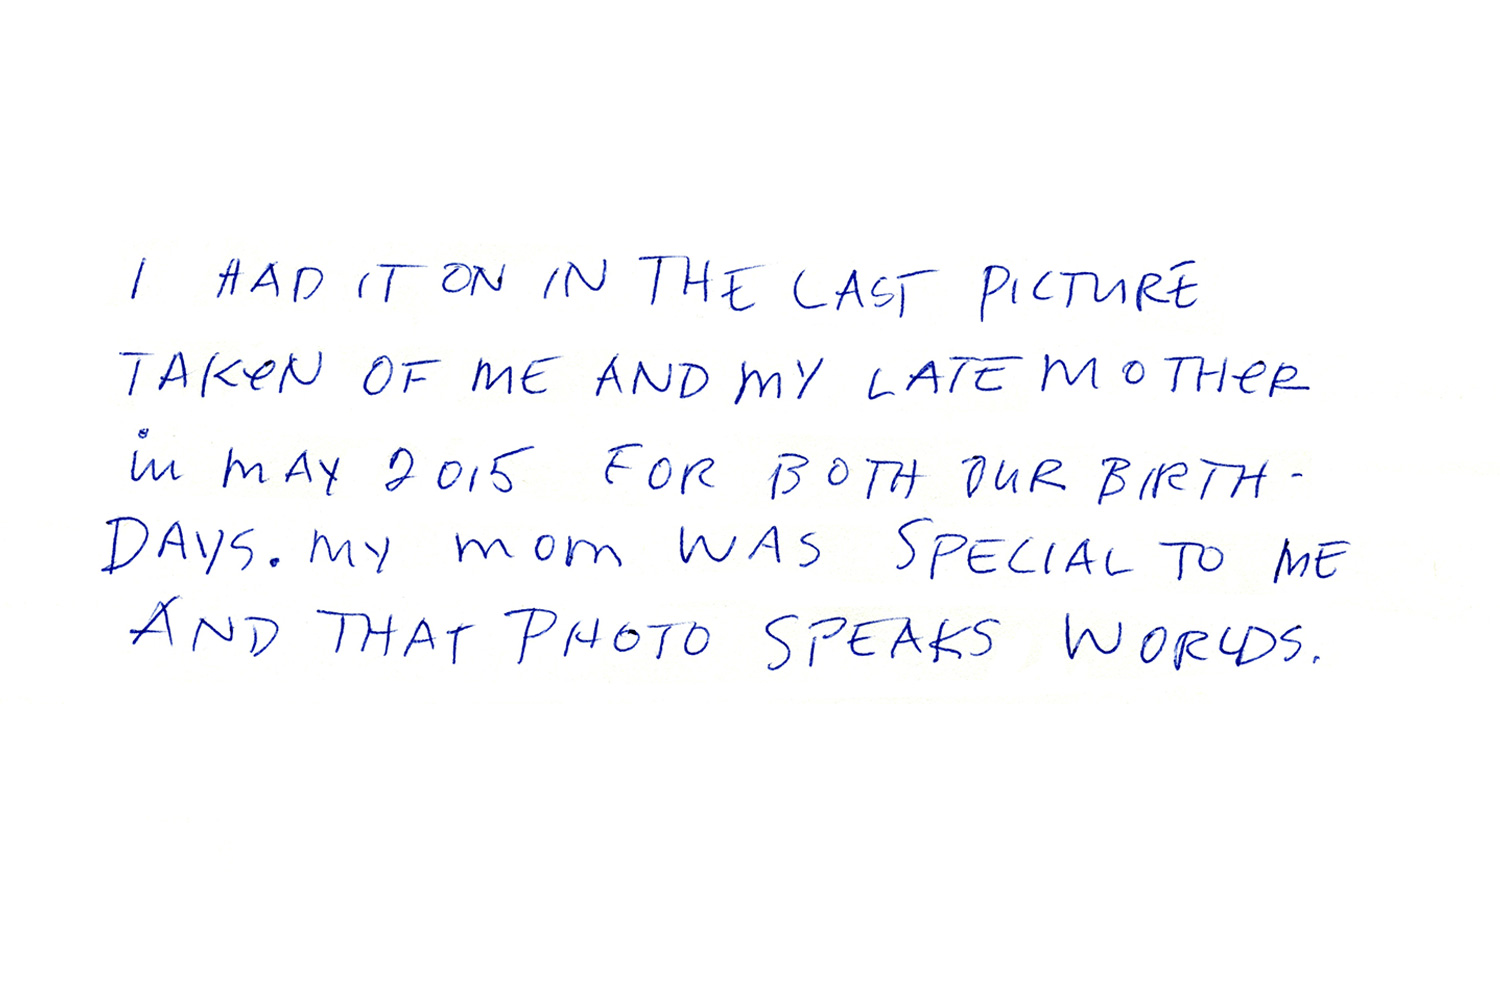 I HAD IT ON IN THE LAST PICTURE
TAKEN OF ME AND MY LATE MOTHER
in MAY 2015 FOR BOTH OUR BIRTH-
DAYS. MY mom WAS SPECIAL TO ME
AND THAT PHOTO SPEAKS WORLDS.